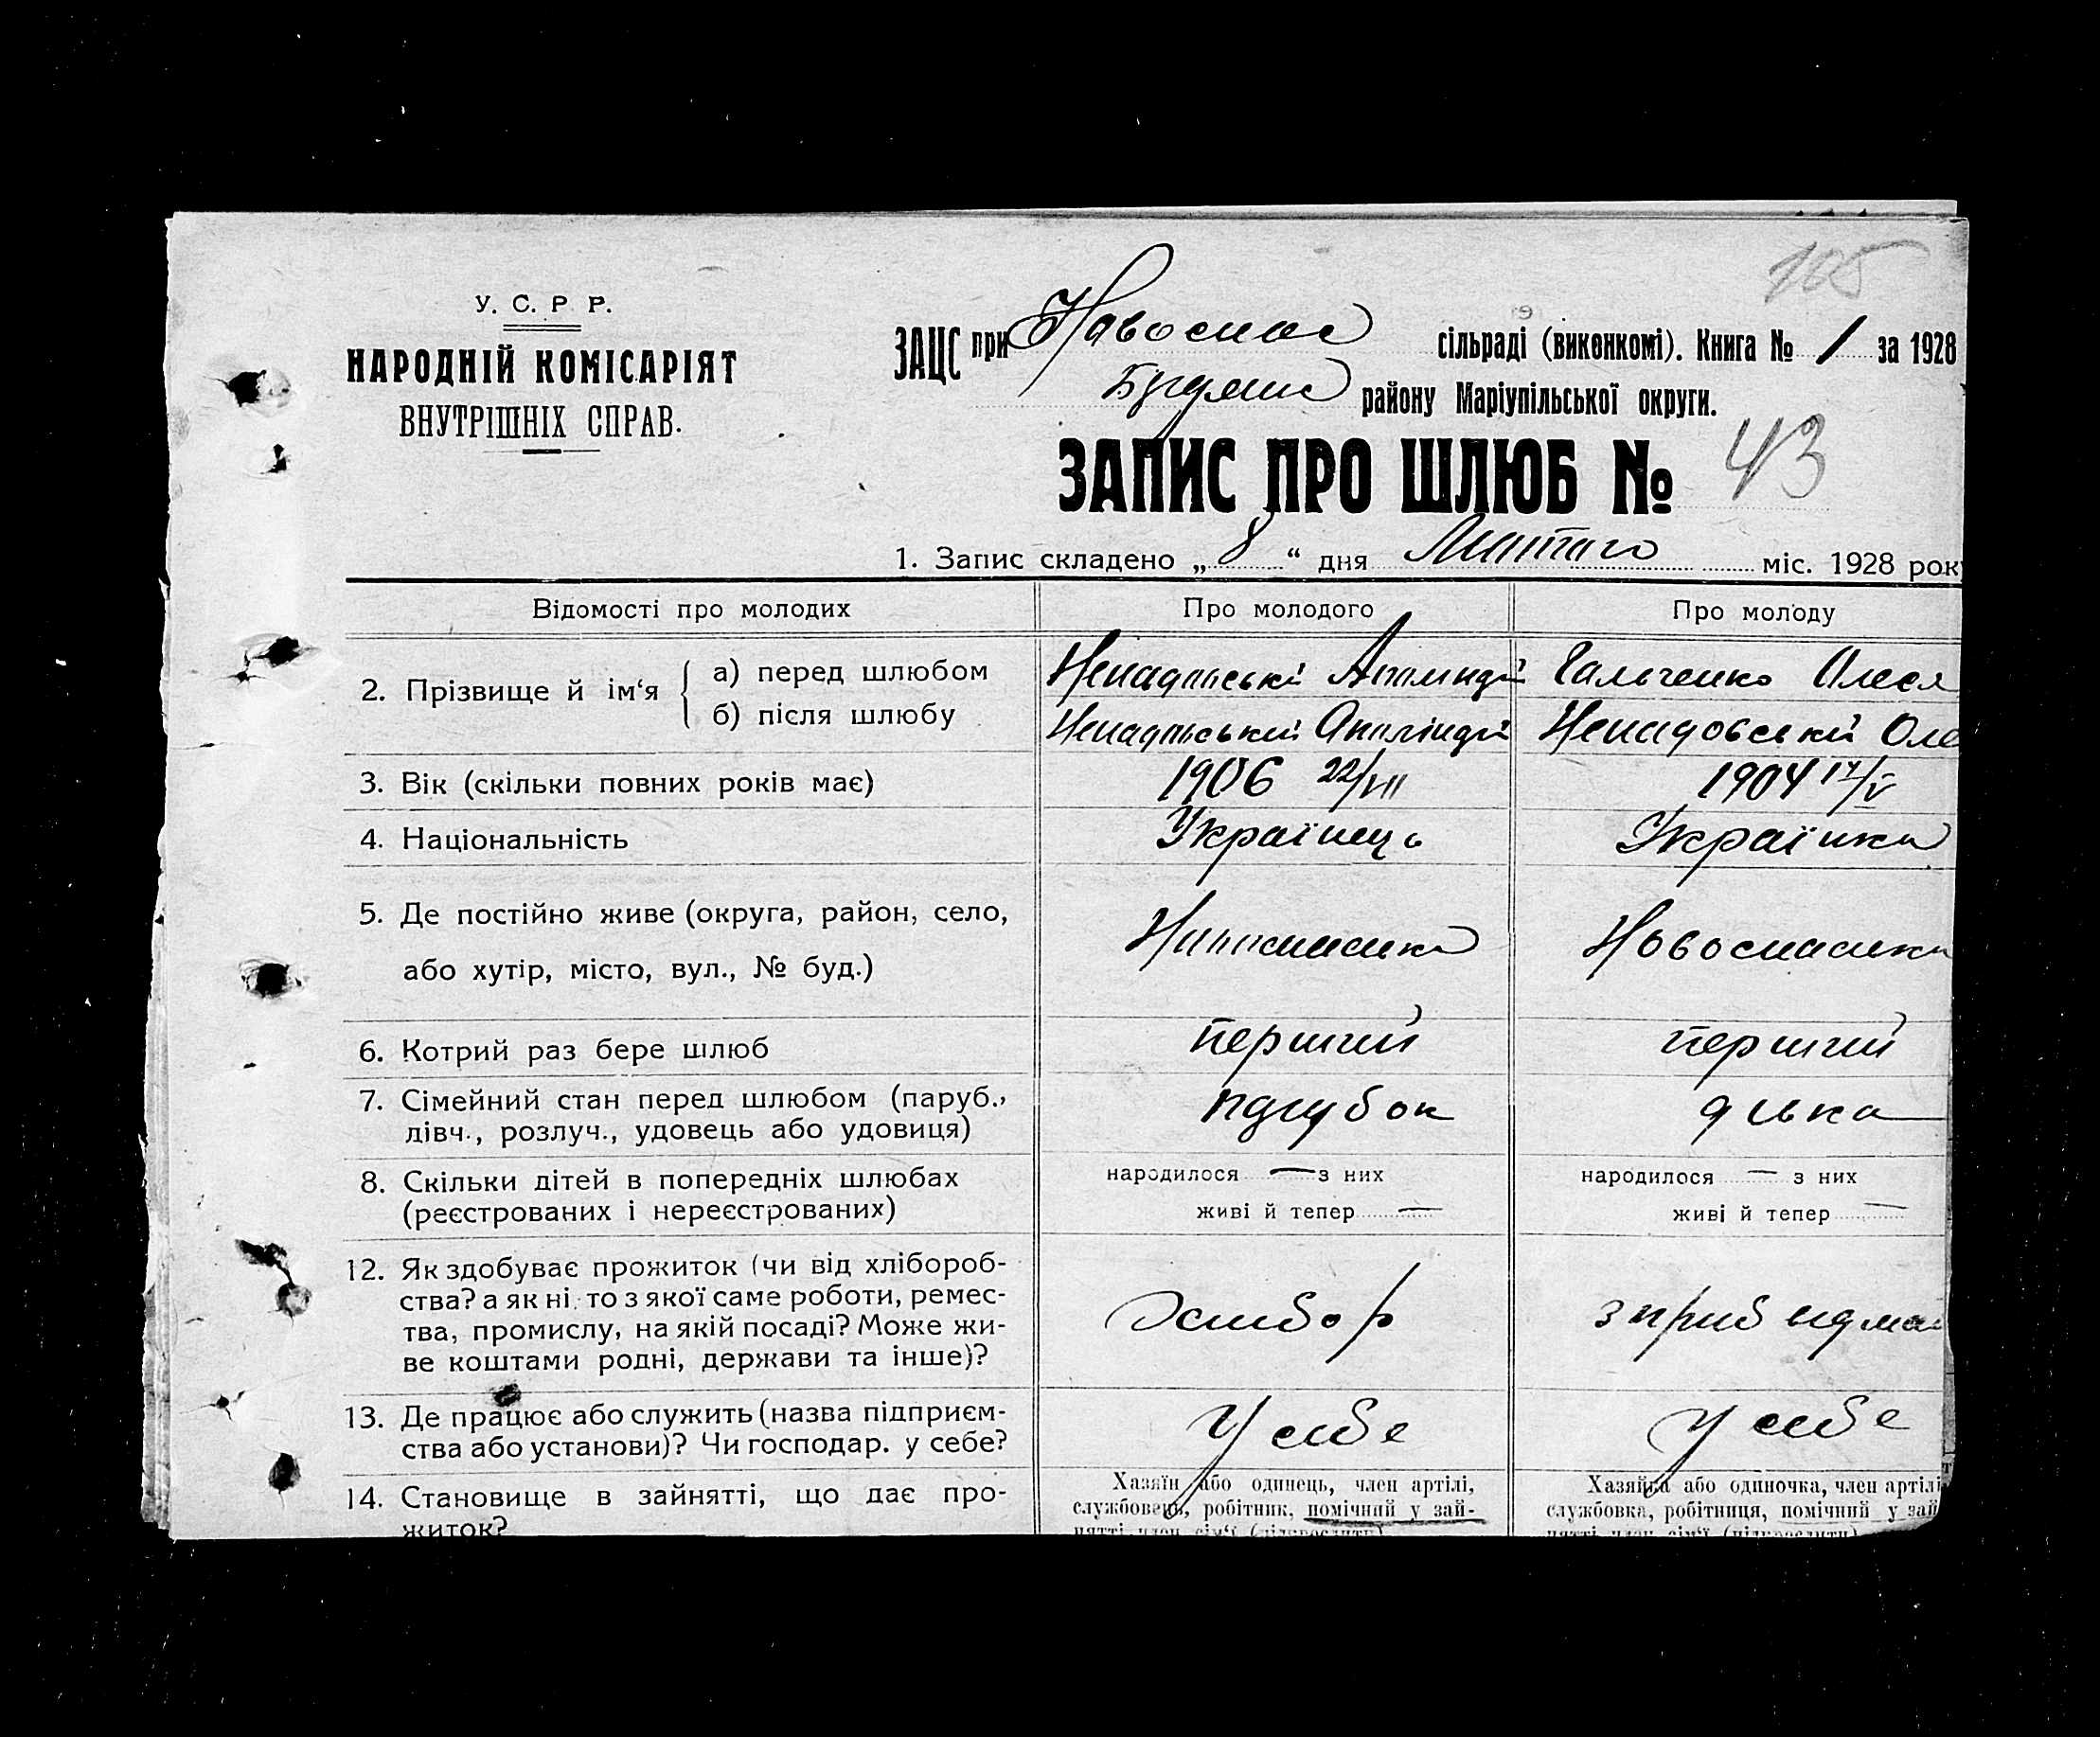 105
У. С. Р. Р.
НАРОДНІЙ КОМІСАРІЯТ
ВНУТРІШНІХ СПРАВ.
ЗАЦС при Новоспас сільраді (виконкомі). Книга № 1 за 1928
району Маріупільської округи.
ЗАПИС ПРО ШЛЮБ № 43
1. Запис складено „8“ дня Лютого міс. 1928 рок
Відомості про молодих Про молодого Про молоду
2. Прізвище й ім‘я
а) перед шлюбом Гальченко Олеся
б) після шлюбу Ненадовській Оле
3. Вік (скільки повних років має) 1906 22/VII 1904 17/V
4. Національність Українець Українка
5. Де постійно живе (округа, район, село, або хутір, місто, вул., № буд.) Новоспасівка Новоспасівка
6. Котрий раз бере шлюб перший перший
7. Сімейний стан перед шлюбом (паруб., дівч., розлуч., удовець або удовиця) парубок дівка
8. Скільки дітей в попередніх шлюбах (реєстрованих і нереєстрованих)
народилося — з них живі й тепер —
народилося — з них живі й тепер —
12. Як здобуває прожиток (чи від хлібороб-
ства? а як ні, то з якої саме роботи, ремес-
тва, промислу, на якій посаді? Може жи-
ве коштами родні, держави та інше)?
Хлібор
13. Де працює або служить (назва підприєм-
ства або установи)? Чи господар. у себе?
У себе У себе
14. Становище в зайнятті, що дає про-
житок?
Хазяїн або одинець, член артілі,
службовець, робітник, помічний у зай-
нятті член сім‘ї (підкреслити)
Хазяйка або одиночка, член артілі
службовка, робітниця, помічний у зай
нятті член сім‘ї (підкреслити)